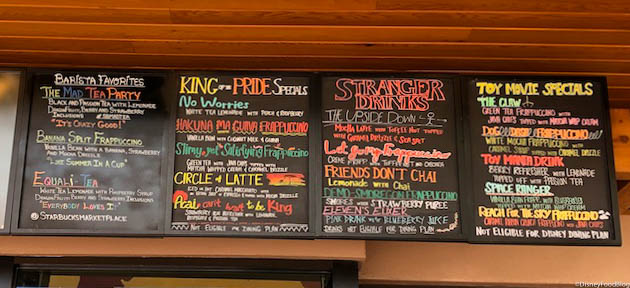 Barista Favorites
The Mad Tea Party
Black and Passion Tea with Lemonade
Dragonfruit, Berry and Strawberry
Inclusions
"It's Crazy Good!"
Banana Split Frappuccino
Vanilla Bean with a Banana, Strawberry
and Mocha Drizzle
"Like Summer In a Cup"
Equali-Tea
White Tea Lemonade with Raspberry Syrup
Dragonfruit, Berry and Strawberry Inclusions
"Everybody Loves It"
@StarbucksMarketplace
KING of the PRIDE Specials
No Worries
White Tea Lemonade with Peach & Raspberry
Hakuna Ma Guava Frappuccino
Vanilla Bean with Coconut Milk & Guava
Slimey, yet Satisfying Frappuccino
Green Tea with Java Chips
Matcha Whipped Cream & Caramel Drizzle
CIRCLE of LATTE
Iced
I Just can't wait to be King
Strawberry
Dragonfruit & Passion Tea
Not Eligible for Dining Plan
STRANGER
DRINKS
THE UPSIDE DOWN
Mocha Latte with Toffee Nut topped
with Caramel Drizzle & Sea Salt
Let go my Frappuccino
Creme Frapp
FRIENDS DON'T CHAI
Lemonade with Chai
DEMO-GORGEOUS FRAPPUCCINO
S'mores with Strawberry Puree
ELEVEN'S ELIXER
Pink Drink with Blueberry Juice
Drinks not Eligible for Dining Plan
TOY MOVIE SPECIALS
THE CLAW
Green Tea Frappuccino with
Java Chips topped with Mocha Whip Cream
Dog Frappuccino
White Mocha Frappuccino
with Caramel Drizzle
Toy Mania Drink
Berry Refresher with Lemonade
topped off with Passion Tea
SPACE RANGER
Vanilla Bean Frapp with Blueberries
topped with Matcha Whip Cream
REACH FOR THE SKY FRAPPUCCINO
with Java Chips
Not Eligible for Disney Dining Plan
©DisneyFoodBlog